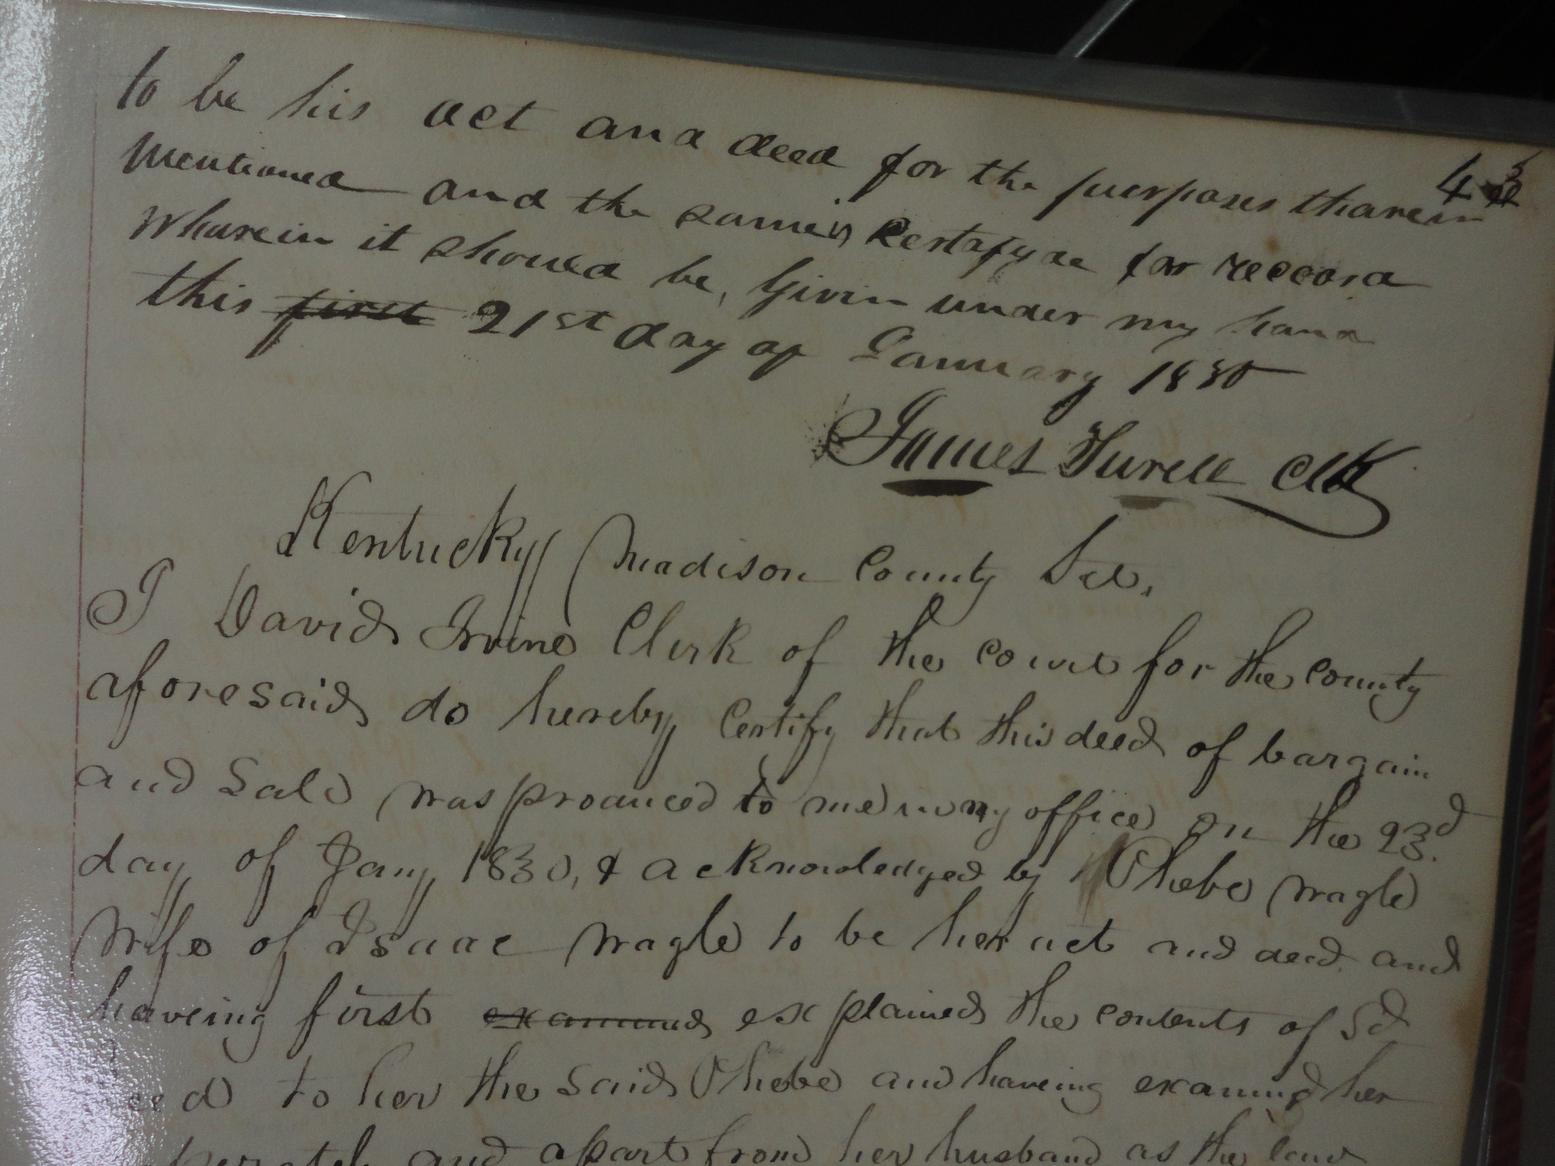 to be his act and deed for the purposes tharein
43
Mentioned and the same is Certafyde for reccord
Wharein it should be, Given under my hand
this first 21st day of January 1830
James Turell Clk
Kentucky Madison County Sct.
I David Irvine Clerk of the court for the county
aforesaid do hereby Certify that this deed of bargain
and Sale was produced to me in my office on the 23d
day of Jany 1830, & acknowledged by Phebe Nagle
Wife of Isaac Nagle to be her act and deed and
haveing first examined explained the contents of Sd
deed to her the said Phebe and haveing examined her
and apart from her husband as the law